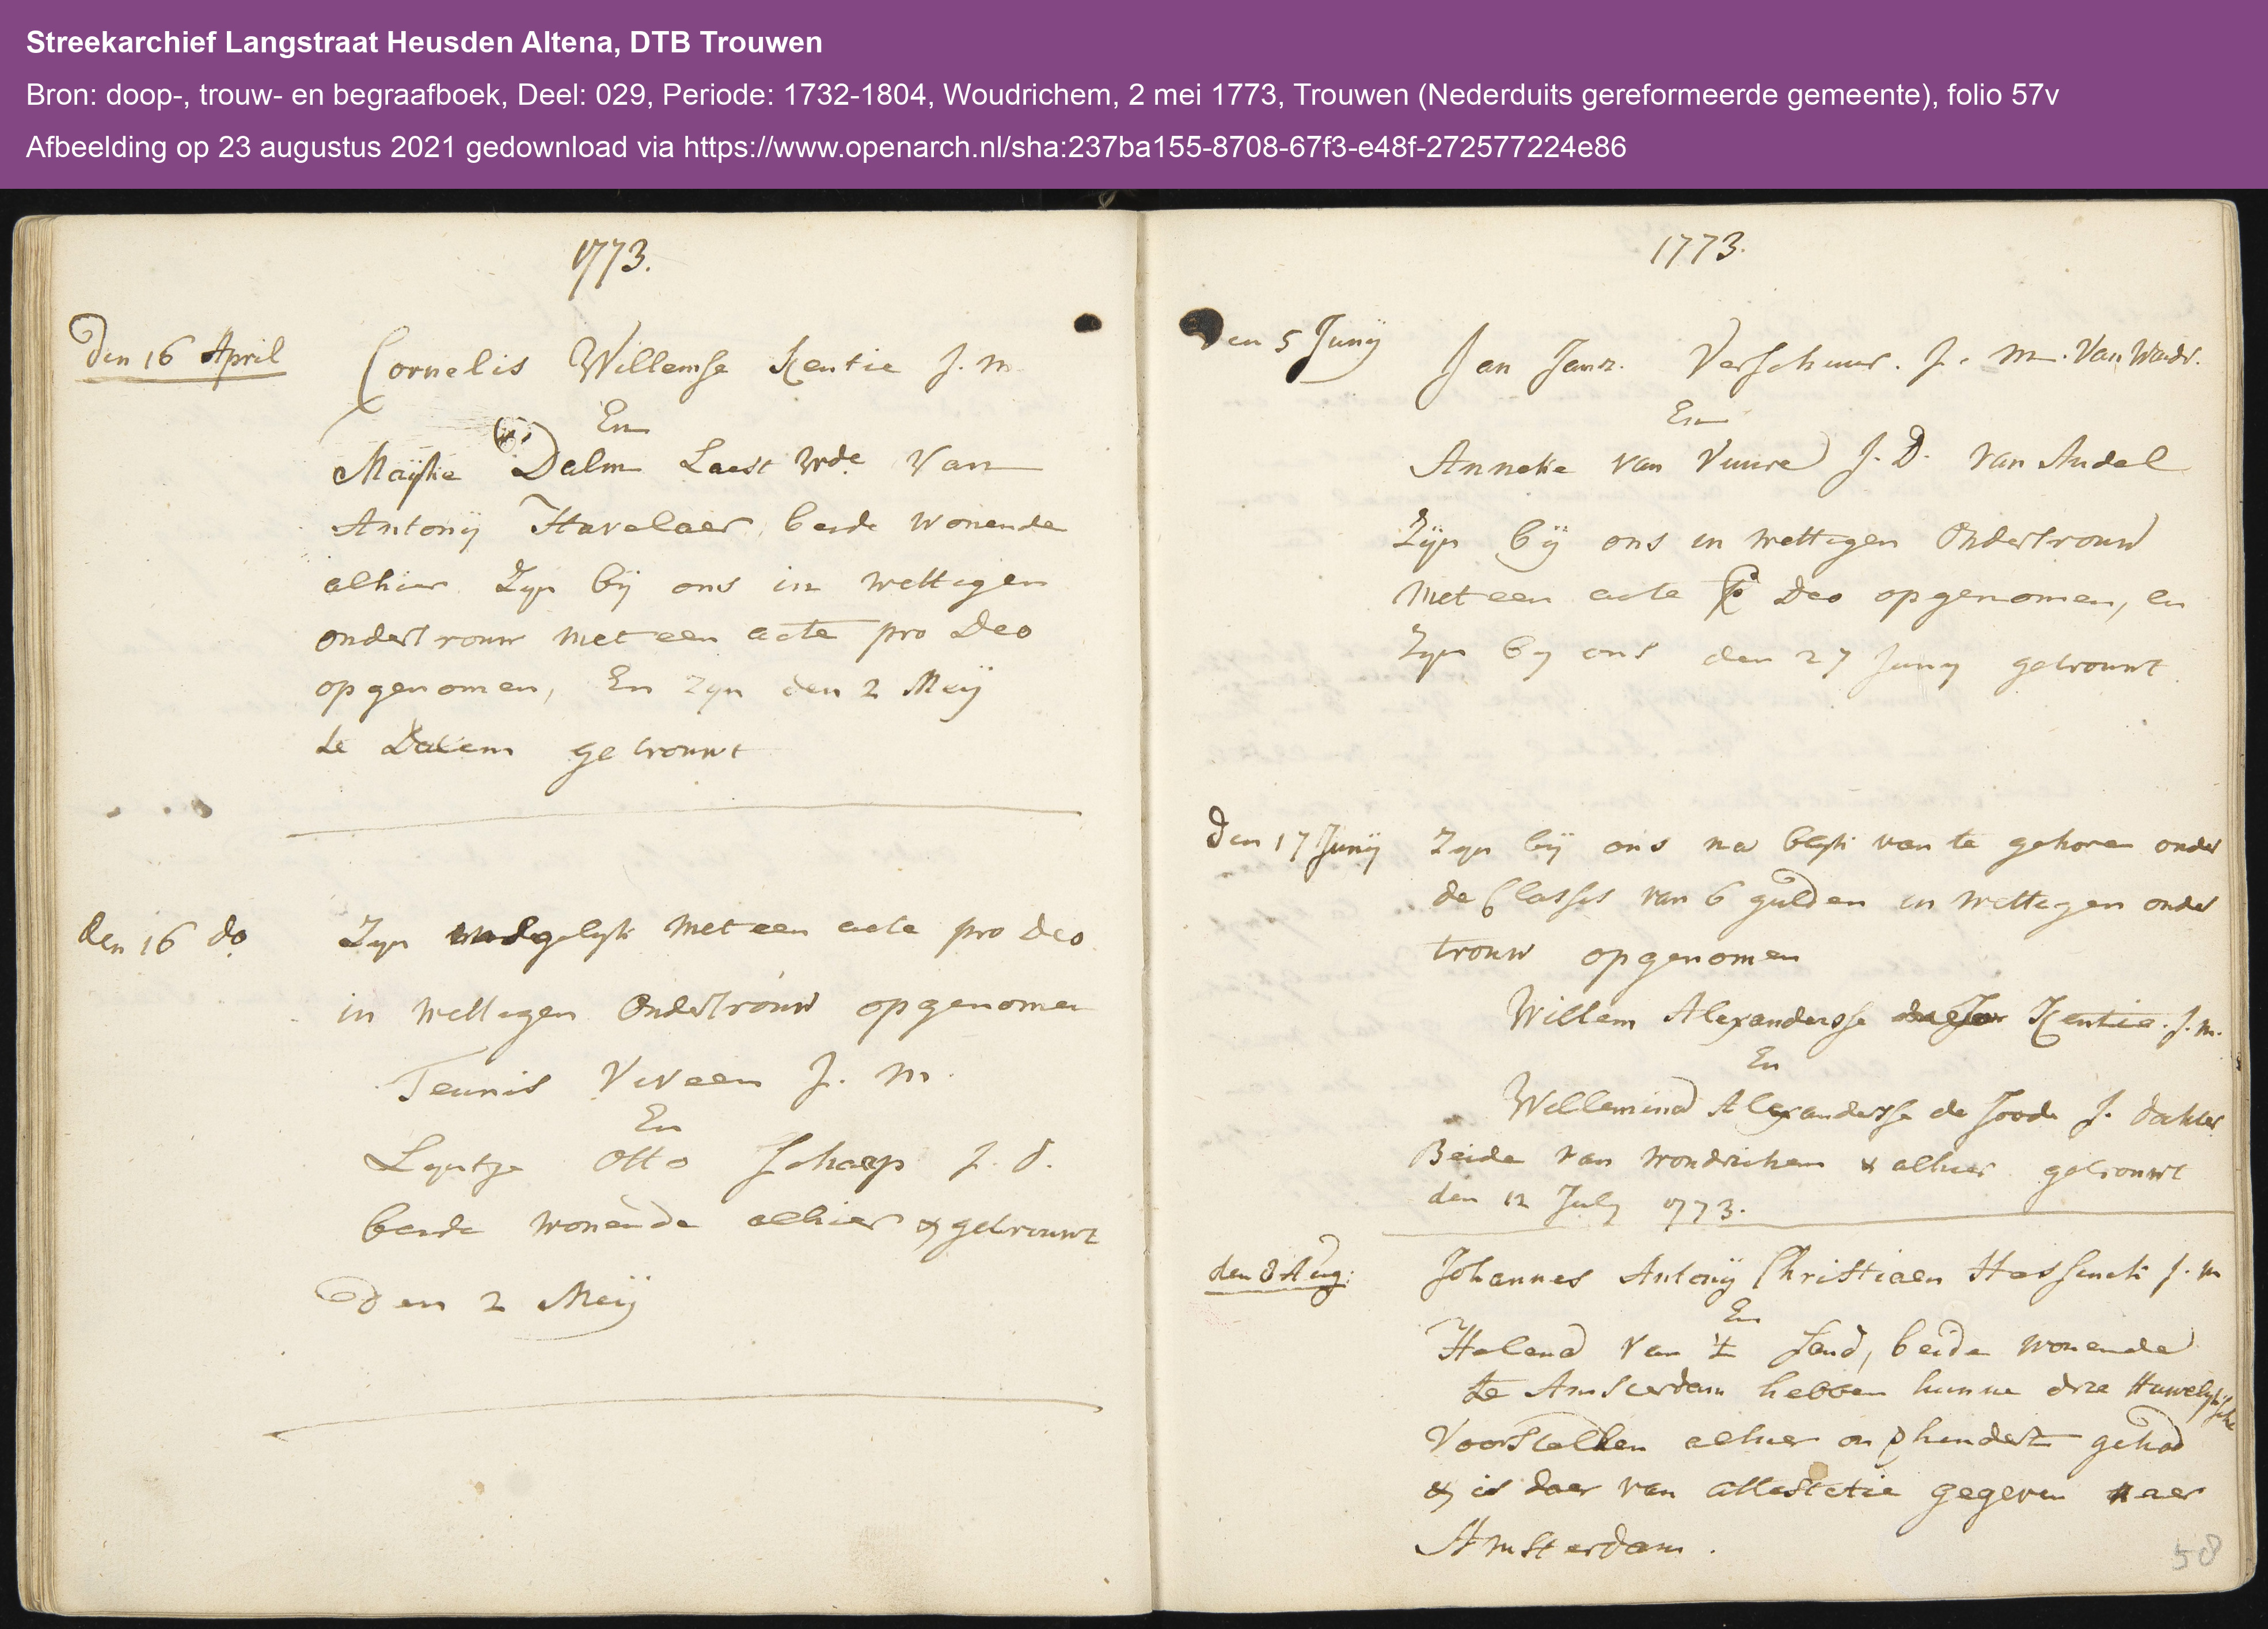 Streekarchief Langstraat Heusden Altena, DTB Trouwen
Bron: doop-, trouw- en begraafboek, Deel: 029, Periode: 1732-1804, Woudrichem, 2 mei 1773, Trouwen (Nederduits gereformeerde gemeente), folio 57v
Afbeelding op 23 augustus 2021 gedownload via https://www.openarch.nl/sha:237ba155-8708-67f3-e48f-272577224e86
1773.
Den 16 April
Cornelis Willemse Kentie J. m.
En
Maijke Dalm Laest wde van
Antonij Havelaer, beide wonende
alhier Zyn bij ons in wettigen
ondertrouw met een acte pro Deo
opgenomen, En zyn den 2 Meij
te Dalem getrouwt
den 16 do.
Zyn insgelyk met een acte pro Deo
in wettigen Ondertrouw opgenomen
Teunis Viveen J. m.
En
Lyntje Otto Schaap J. d.
beide wonende alhier & getrouwt
den 2 Meij
1773.
Den 5 Junij
Jan Janz. Verschuur. J. m. Van Woudr.
En
Anneke van Vuure J. D. van Andel
Zijn bij ons in wettigen Ondertrouw
Met een acte Deo opgenomen, en
Zyn by ons den 27 Juny getrouwt
Den 17 Junij
Zyn bij ons na blyk van te gehoren onder
de Classis van 6 gulden in wettigen onder
trouw opgenomen
Willem Alexandersse Kentie. J. m.
En
Willemina Alexandersse de Joode J. dahter
Beide van woudrichem & alhier getrouwt
den 12 July 1773.
den 8 Aug:
Johannes Antonij Christiaen Hessinck J. m
En
Helena van 't Sand, beide wonende
te Amsterdam hebben hunne drie Huwelijksche
Voorstellen alhier onverhindert gehad
& is daer van attestatie gegeven naer
Amsterdam.
58